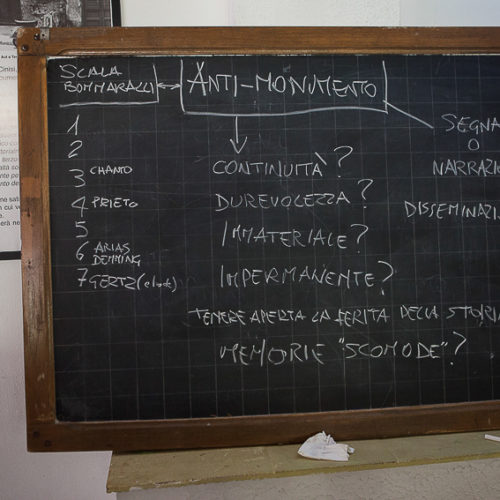 SCALA
BOMMARALLI
ANTI-MONUMENTO
SEGNA
O
NARRAZIO
DISSEMINAZI
1
2
3 CHANTO
4 PRIETO
5
6 ARIAS
DEMMING
7 GERTZ
CONTINUITÀ?
DUREVOLEZZA?
IMMATERIALE?
IMPERMANENTE?
TENERE APERTA LA FERITA DELLA STORIA
MEMORIE "SCOMODE"?
Cinisi,